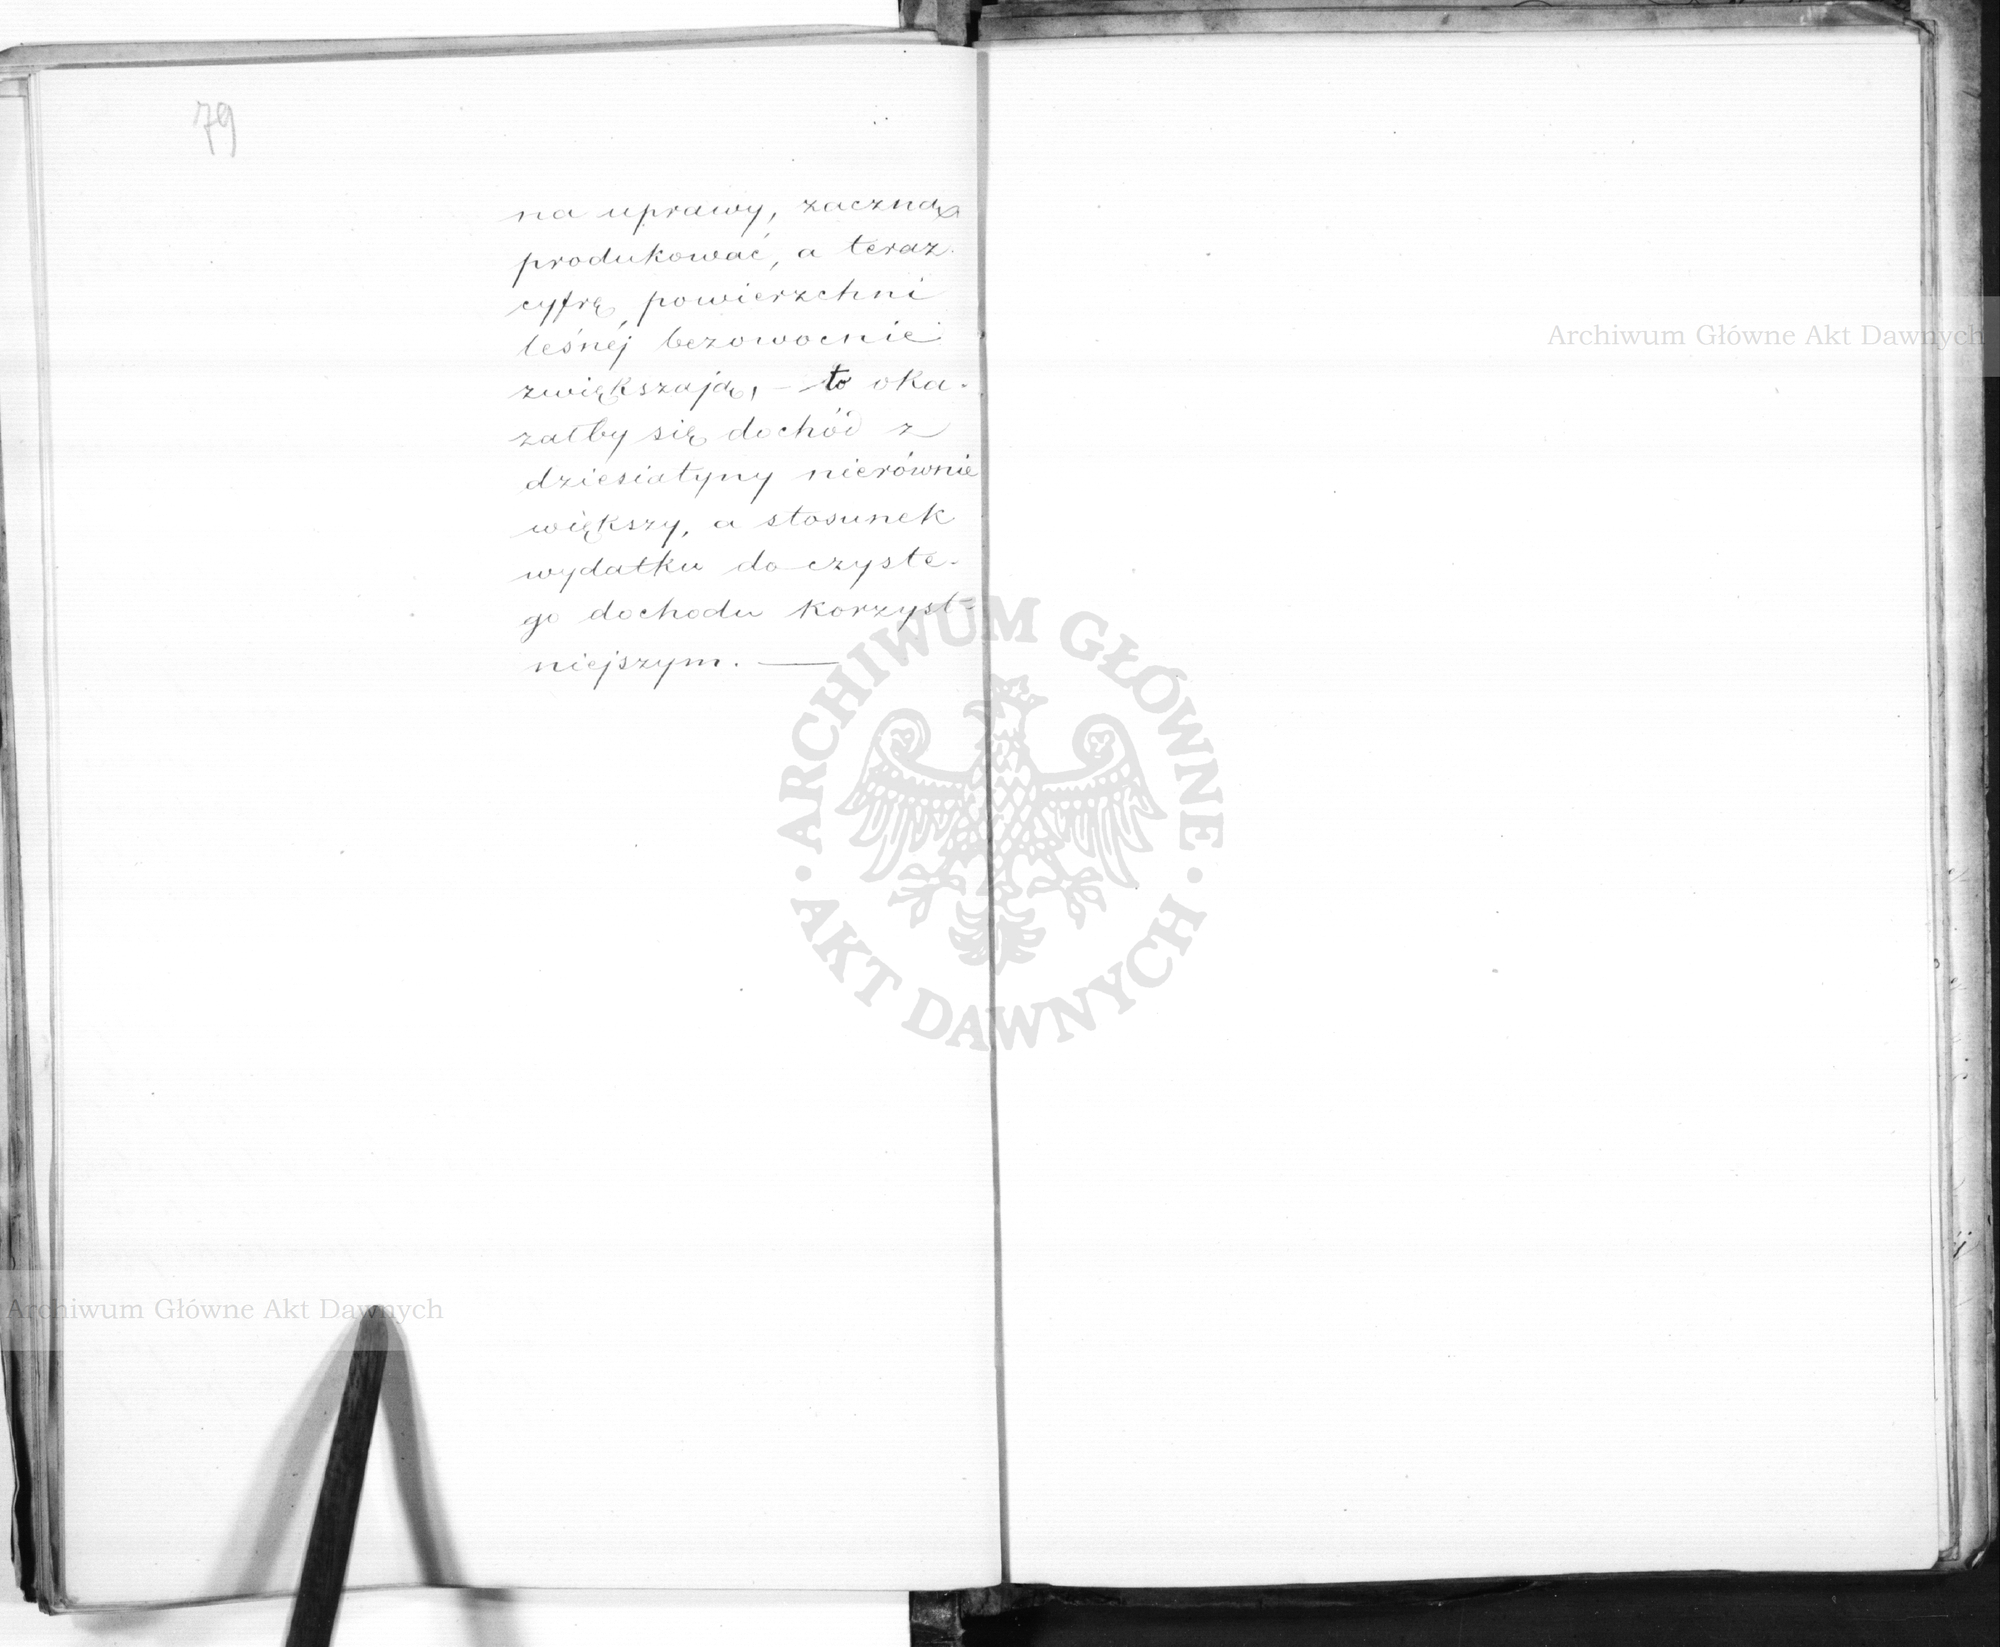 79
na uprawy, zaczną
produkować, a teraz
cyfrę powierzchni
leśnéj bezowocnie
zwiększają, — to oka-
załby się dochód z
dziesiatyny nierównie
większy, a stosunek
wydatku do czyste-
go dochodu korzyst-
niejszym. —
Archiwum Główne Akt Dawnych
ARCHIWUM GŁÓWNE
AKT DAWNYCH
Archiwum Główne Akt Dawnych